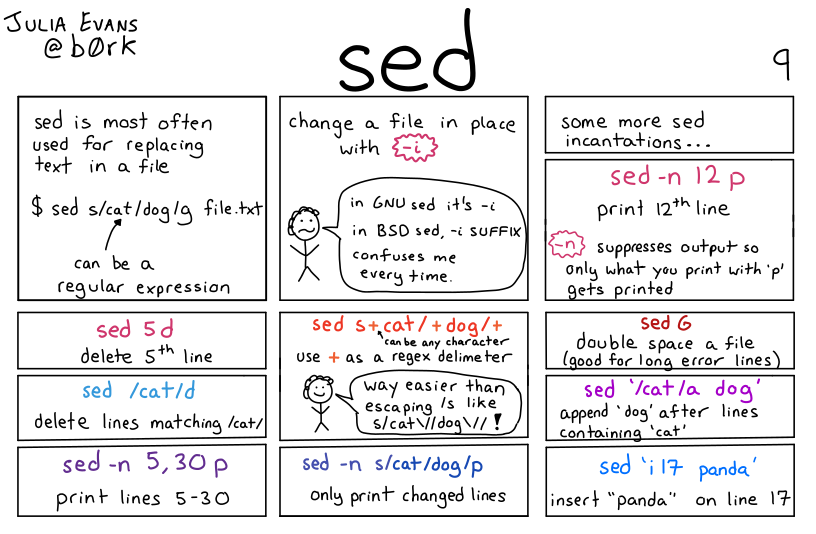 JULIA EVANS
@b0rk
sed
9
sed is most often
used for replacing
text in a file
$ sed s/cat/dog/g file.txt
can be a
regular expression
change a file in place
with -i
in GNU sed it's -i
in BSD sed, -i SUFFIX
confuses me
every time.
some more sed
incantations...
sed -n 12 p
print 12th line
-n suppresses output so
only what you print with 'p'
gets printed
sed 5d
delete 5th line
sed s+cat/+dog/+
can be any character
use + as a regex delimeter
way easier than
escaping /s like
s/cat\//dog\// !
sed G
double space a file
(good for long error lines)
sed /cat/d
delete lines matching /cat/
sed '/cat/a dog'
append 'dog' after lines
containing 'cat'
sed -n 5,30 p
print lines 5-30
sed -n s/cat/dog/p
only print changed lines
sed 'i 17 panda'
insert "panda" on line 17